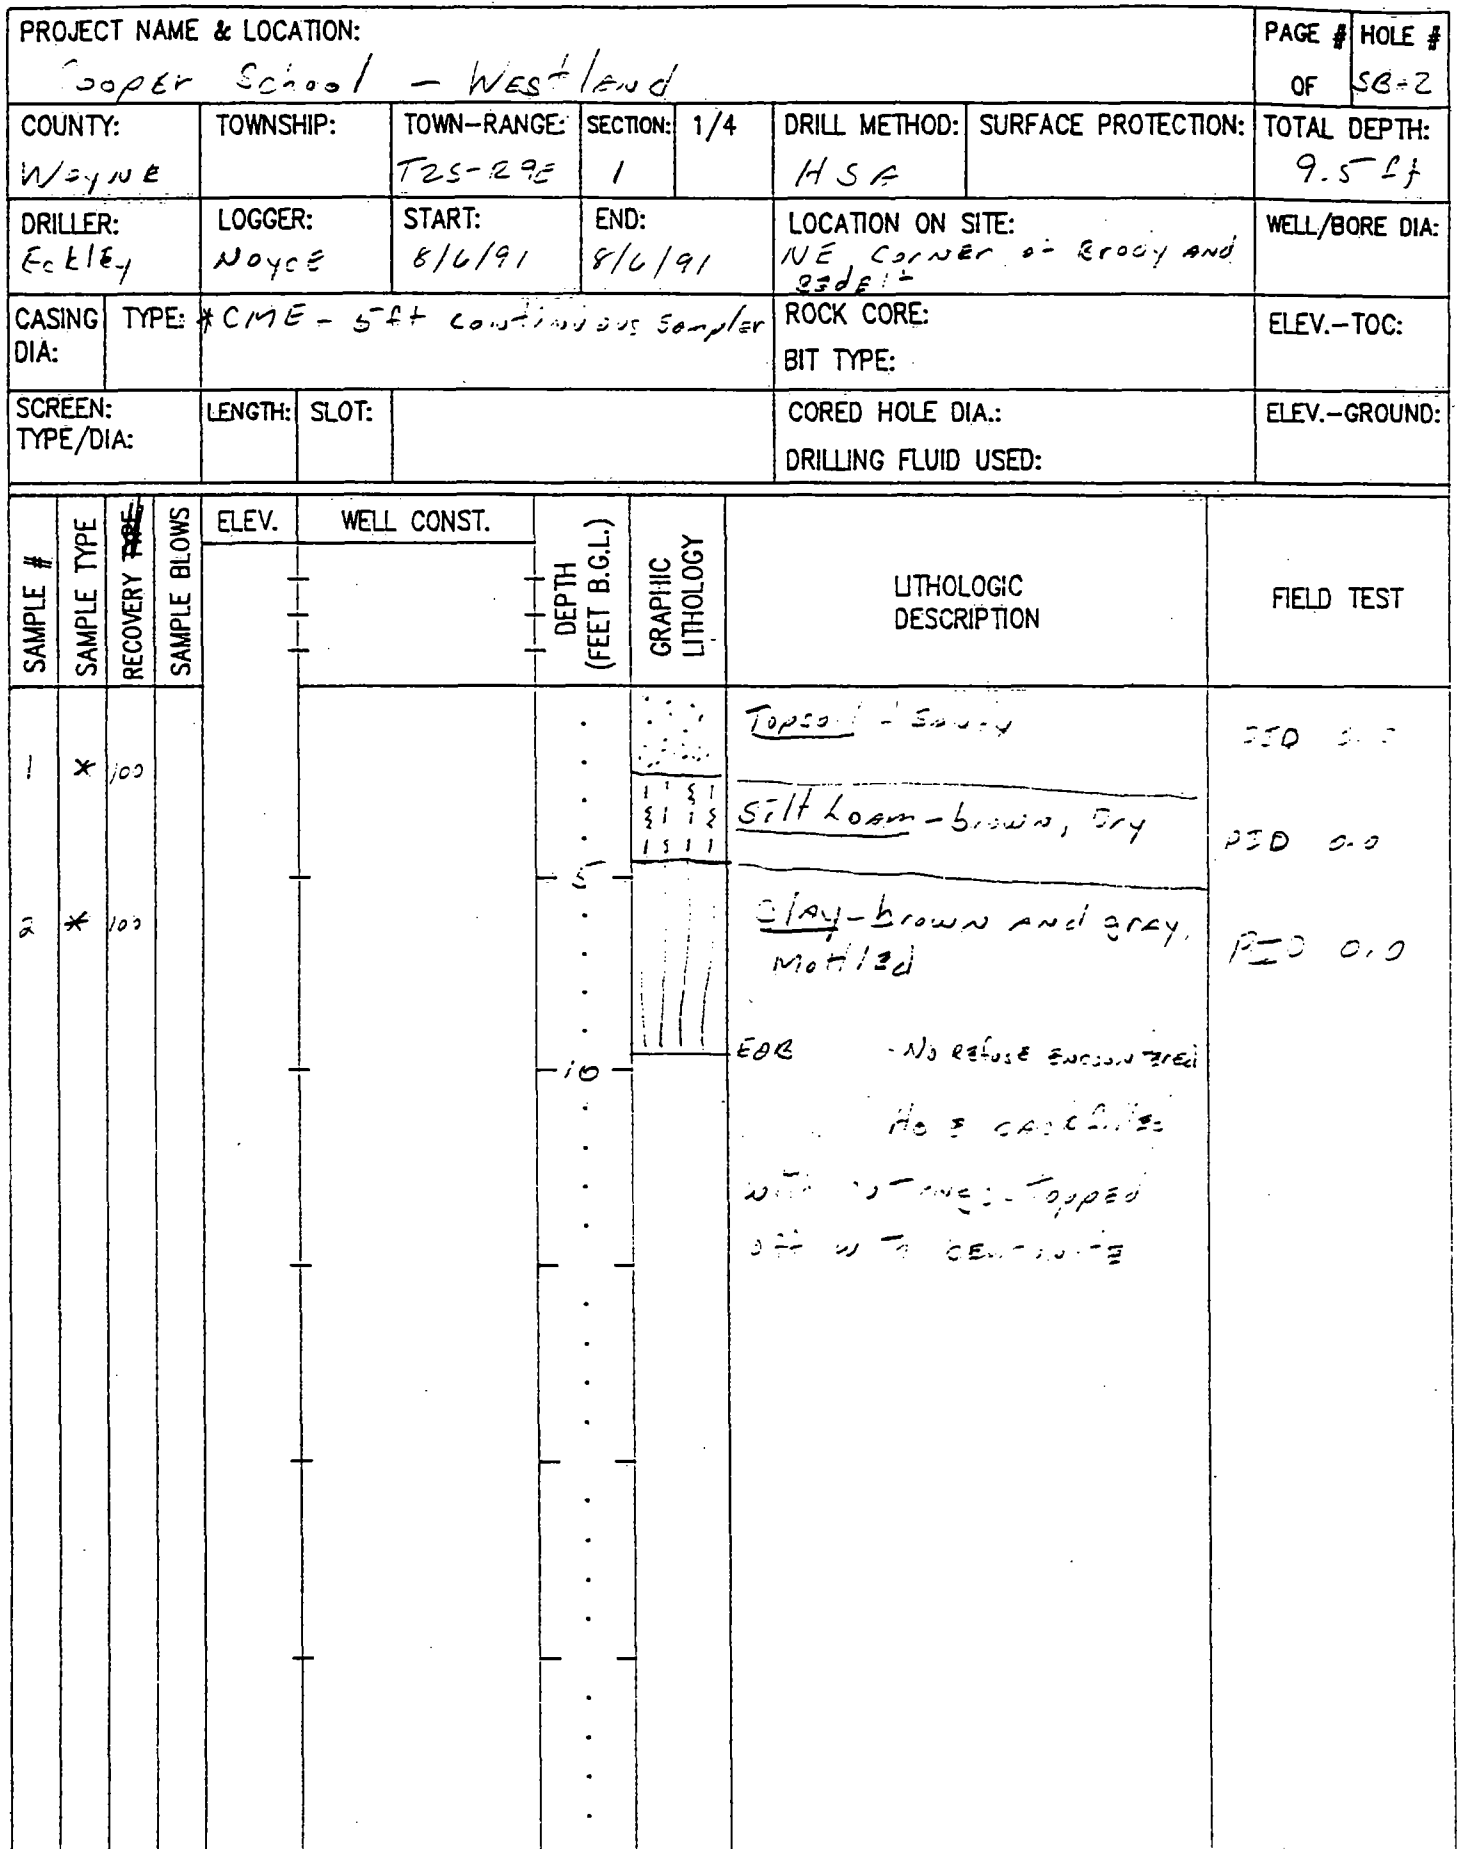 PROJECT NAME & LOCATION:
School - Westland
PAGE #
OF
HOLE #
SB-2
COUNTY:
Wayne
TOWNSHIP:
TOWN-RANGE:
T2S-R9E
SECTION:
1
1/4
DRILL METHOD:
HSA
SURFACE PROTECTION:
TOTAL DEPTH:
9.5 ft
DRILLER:
Eckley
LOGGER:
Noyce
START:
8/6/91
END:
8/6/91
LOCATION ON SITE:
NE Corner of and
WELL/BORE DIA:
CASING
DIA:
TYPE:
* CME - 5ft Continuous Sampler
ROCK CORE:
BIT TYPE:
ELEV.-TOC:
SCREEN:
TYPE/DIA:
LENGTH:
SLOT:
CORED HOLE DIA.:
DRILLING FLUID USED:
ELEV.-GROUND:
SAMPLE #
SAMPLE TYPE
RECOVERY
SAMPLE BLOWS
ELEV.
WELL CONST.
DEPTH
(FEET B.G.L.)
GRAPHIC
LITHOLOGY
LITHOLOGIC
DESCRIPTION
FIELD TEST
Topsoil - Sandy
PID 0.0
1 * 100
Silt Loam - brown, Dry
PID 0.0
5
2 * 100
Clay - brown and gray,
Mottled
PID 0.0
EOB - No Refuse Encountered
10
Hole backfilled
with cuttings - Topped
off with bentonite